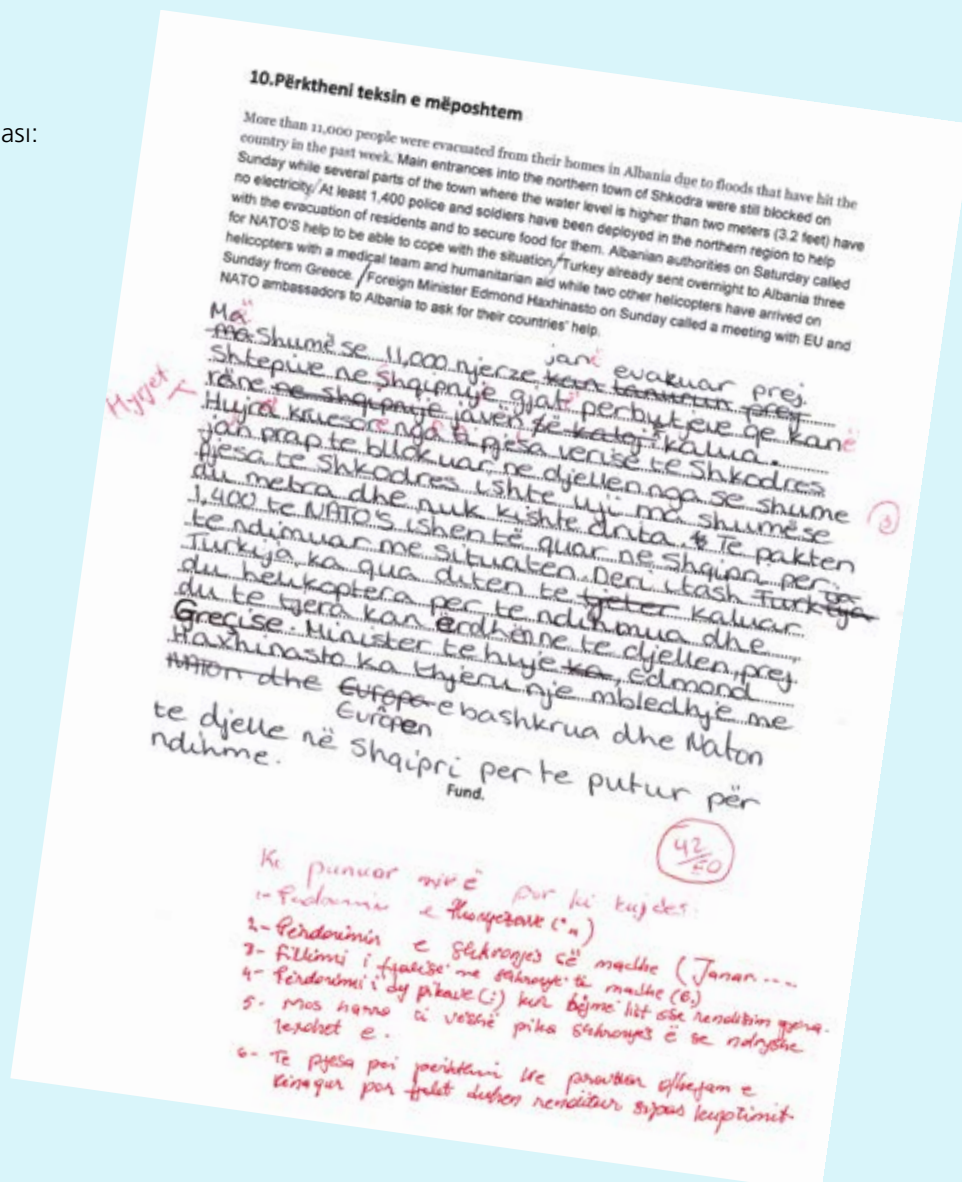 ası:
10.Përktheni teksin e mëposhtem
More than 11,000 people were evacuated from their homes in Albania due to floods that have hit the
country in the past week. Main entrances into the northern town of Shkodra were still blocked on
Sunday while several parts of the town where the water level is higher than two meters (3.2 feet) have
no electricity/At least 1,400 police and soldiers have been deployed in the northern region to help
with the evacuation of residents and to secure food for them. Albanian authorities on Saturday called
for NATO'S help to be able to cope with the situation/Turkey already sent overnight to Albania three
helicopters with a medical team and humanitarian aid while two other helicopters have arrived on
Sunday from Greece. /Foreign Minister Edmond Haxhinasto on Sunday called a meeting with EU and
NATO ambassadors to Albania to ask for their countries' help.
Më
ma Shumë se 11,000 njerze janë evakuar prej
Shtepive ne Shqipnije gjatë perbytjeve qe kanë
räne ne shqipnije javën kalua.
Hyrjet
Hujra kruesore nga pjesa verise te Shkodres
jan prap te bllokuar ne djellen nga se shume
pjesa te Shkodres ishte uji ma shumë se
du metra dhe nuk kishte drita. Te pakten
1,400 te NATO'S ishen të quar ne Shqipri per
te ndimuar me situaten. Deri itash
Turkija, ka qua diten te tjeter kaluar
du helikoptera per te ndihmua dhe
du te tjera kan erdhën ne te djellen, prej
Greçise. Minister te huje ka, Edmond
Haxhinasto ka thjeru nje mbledhje me
dhe Europa e bashkrua dhe Naton
Europen
te djelle në Shqipri per te putur për
ndihme.
Fund.
42/50
Ke punuar mirë por ki kujdes.
1- e thonjezave („)
2- Përdorimin e shkronjes së madhe (Janar....
3- Fillimi i fjalisë me shkronjë të madhe (6.)
4- Përdorimi i dy pikave (:) kur bëjmë list ose renditim gjera.
5. Mos harro ti veshë pika shkronjës ë se ndryshe
lexohet e.
6- Te pjesa por
por fjalët duhen renditur sipas kuptimit